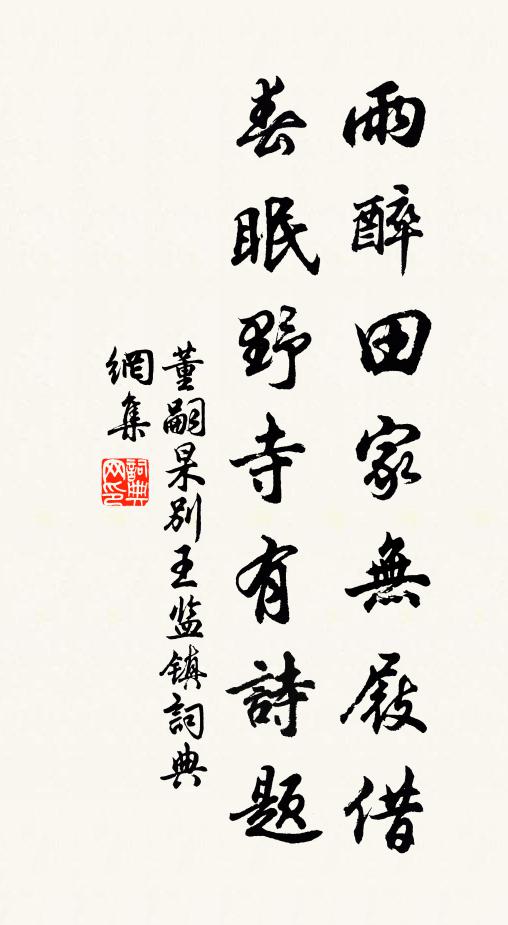 雨醉田家無屐借
春眠野寺有詩題
董嗣杲别王监鎮詞典
網集
詞典
网印